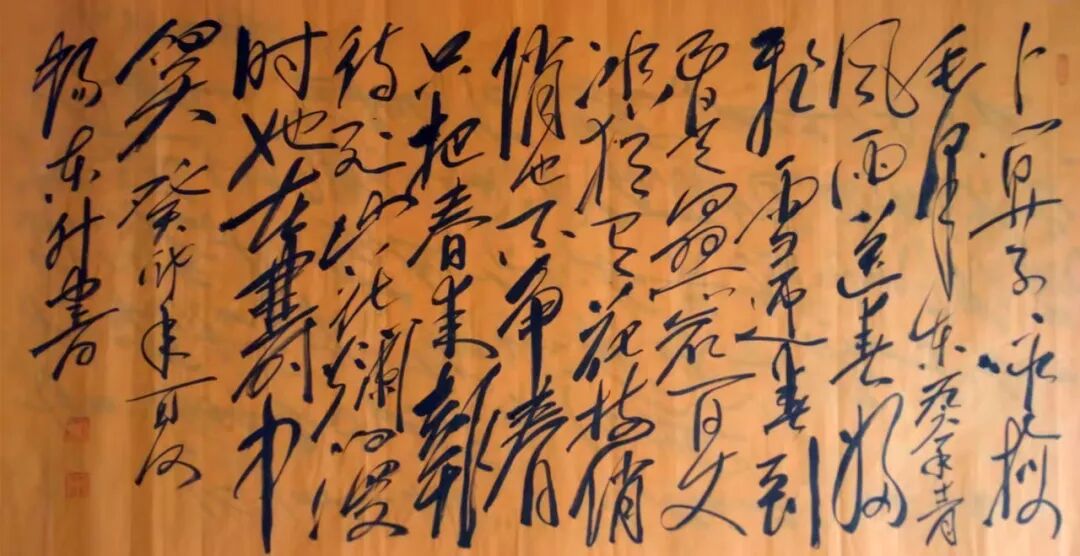 卜算子咏梅
毛泽东
风雨送春归
飞雪迎春到
已是悬崖百丈
冰犹有花枝俏
俏也不争春
只把春来报
待到山花烂漫
时她在丛中
笑 癸卯年夏
杨东升书